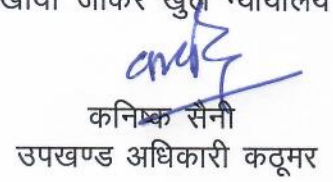 जाकर खुले न्यायालय
कनिष्क सैनी
उपखण्ड अधिकारी कठूमर